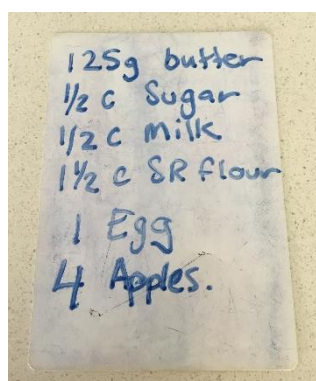 125g butter
1/2 c Sugar
1/2 c milk
1 1/2 c SR flour
1 Egg
4 Apples.